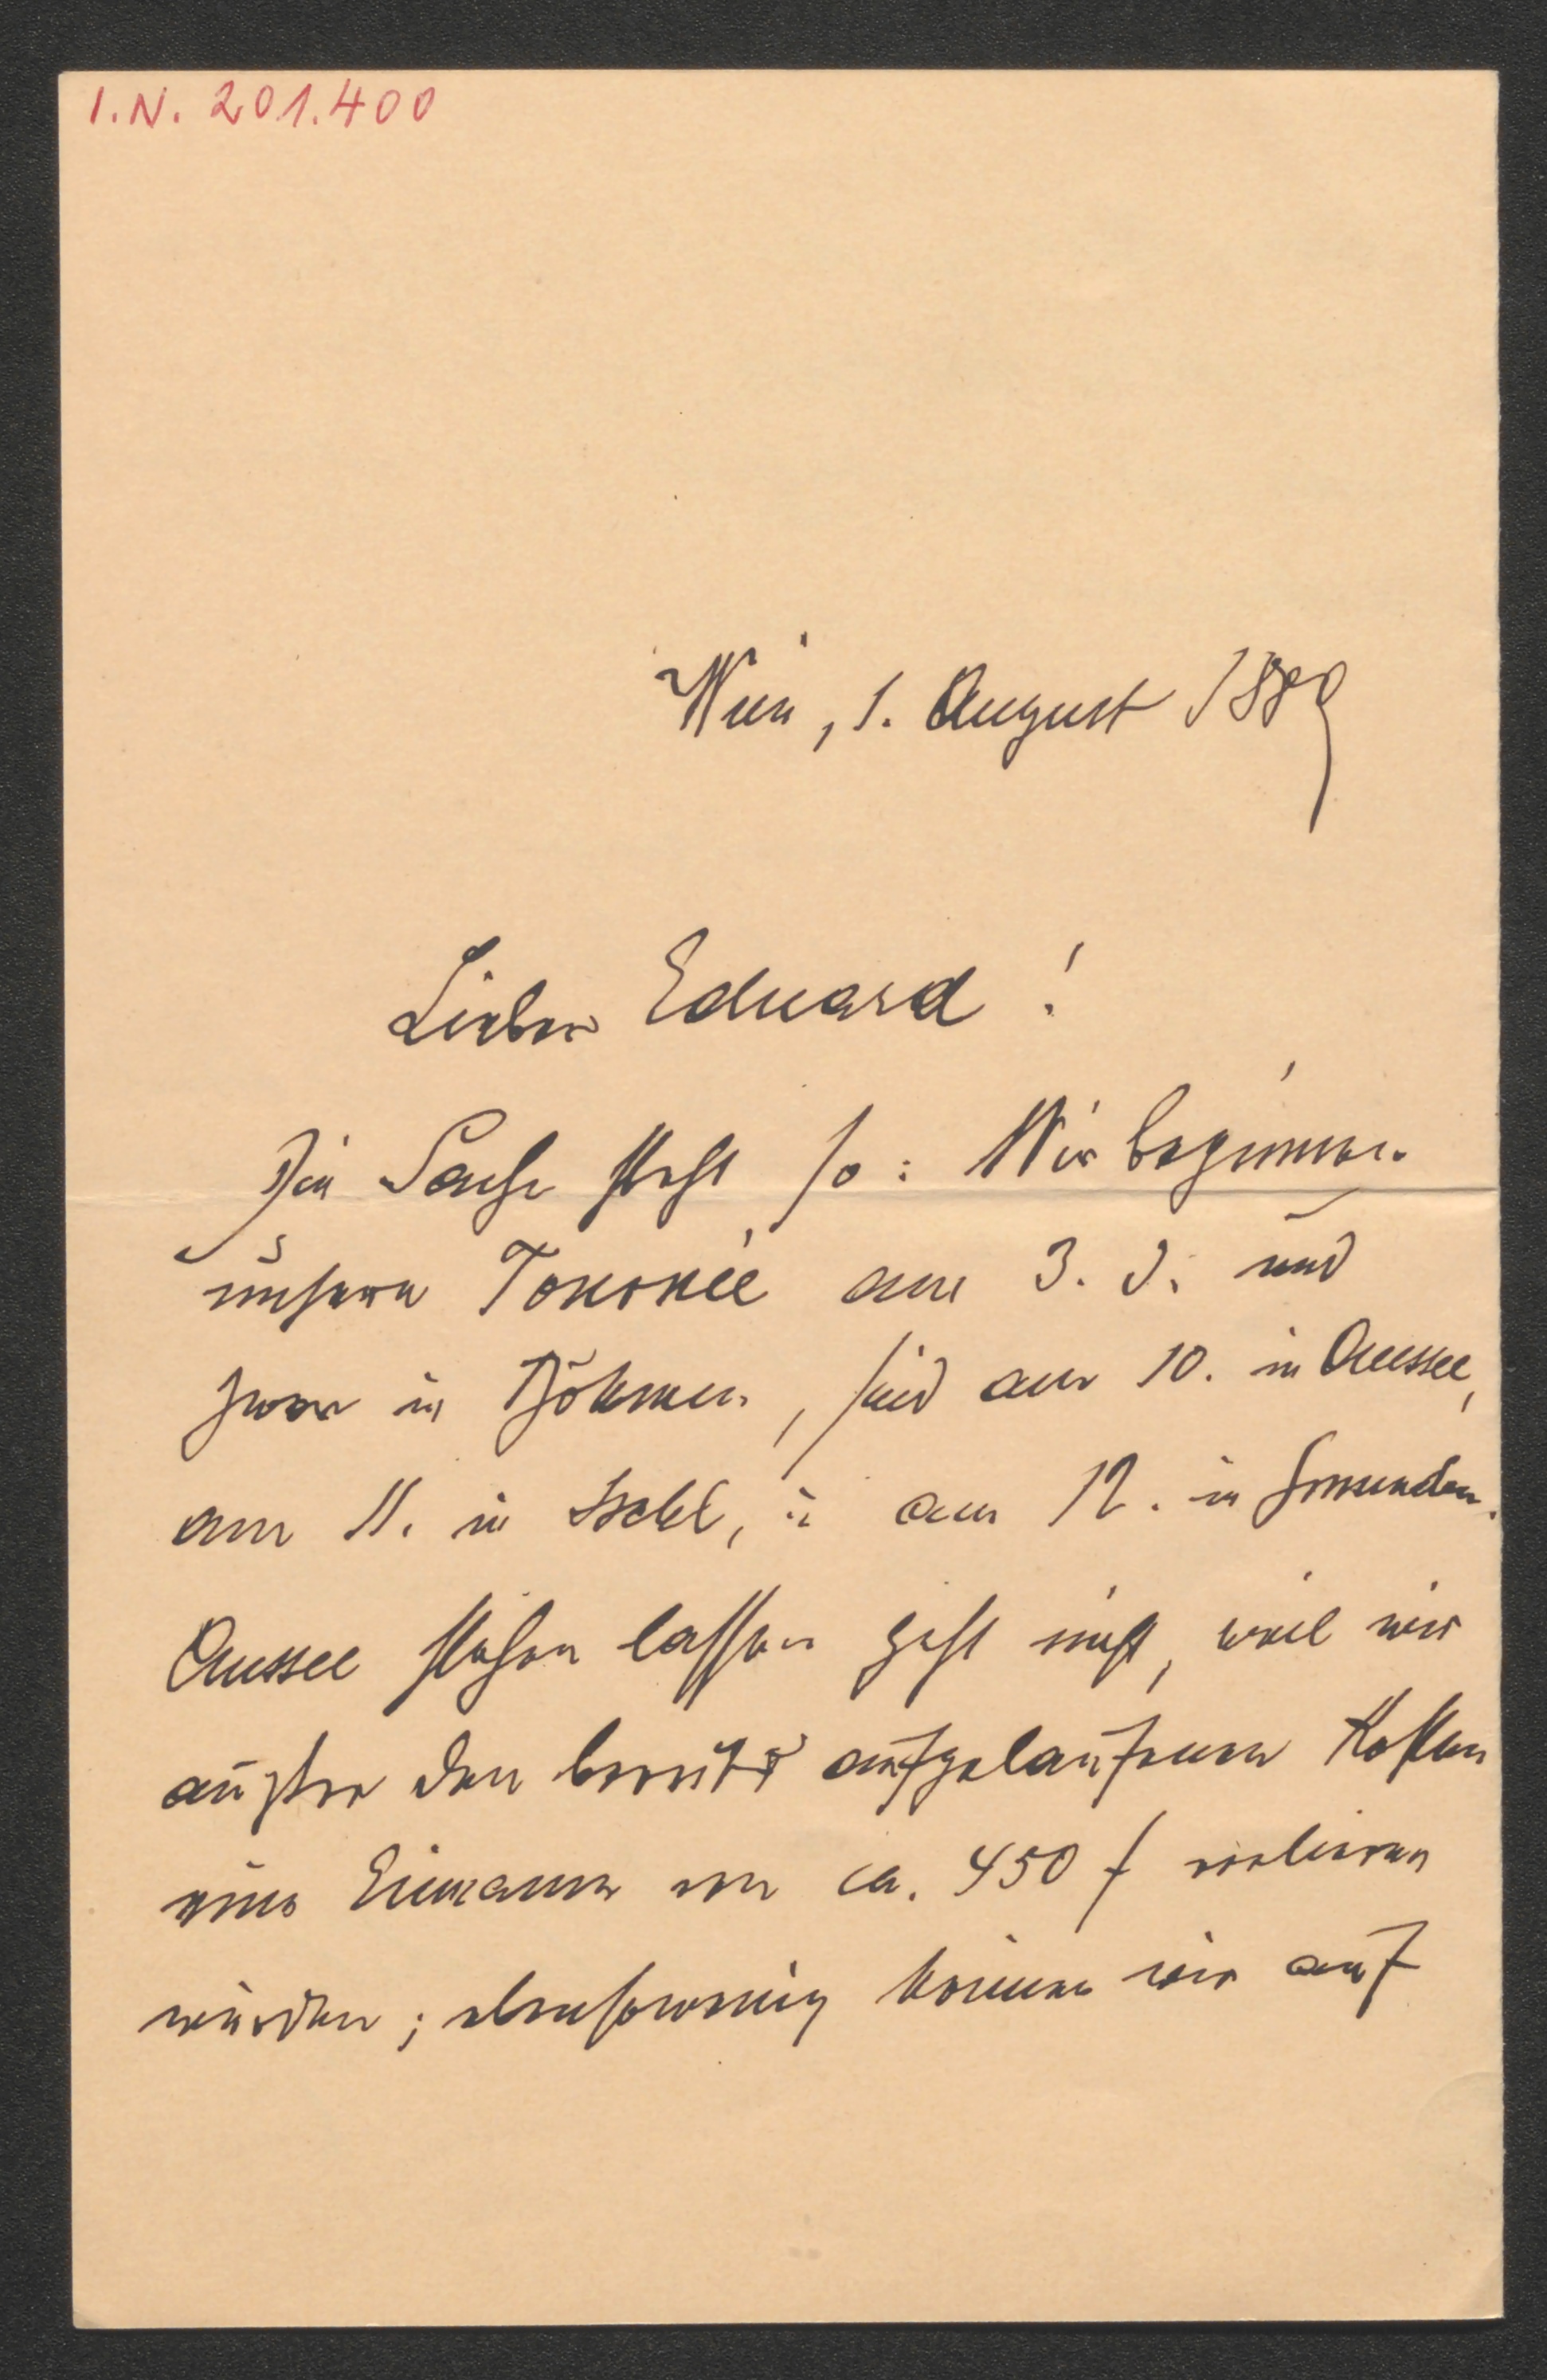 I.N. 201.400
Wien, 1. August 1889
Lieber Eduard!
Die Sache steht so: Wir beginnen
unsere Tournée am 3. d. und
zwar in Böhmen, sind am 10. in Aussee,
am 11. in Ischl, u. am 12. in Gmunden.
Aussee stehen lassen geht nicht, weil wir
außer den bereits aufgelaufenen Kosten
eine Einnahme von ca. 450 f verlieren
würden; ebensowenig können wir auf